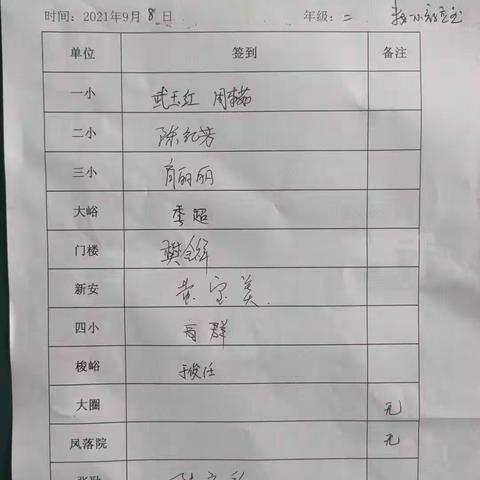 时间：2021年9月8日 年级：二
单位 签到 备注
一小 武玉红
二小 陈纪芳
三小 肖丽丽
大峪 季昭
门楼
新安 黄宝美
四小 育群
梭峪 于俊任
大圈 无
凤落院 无